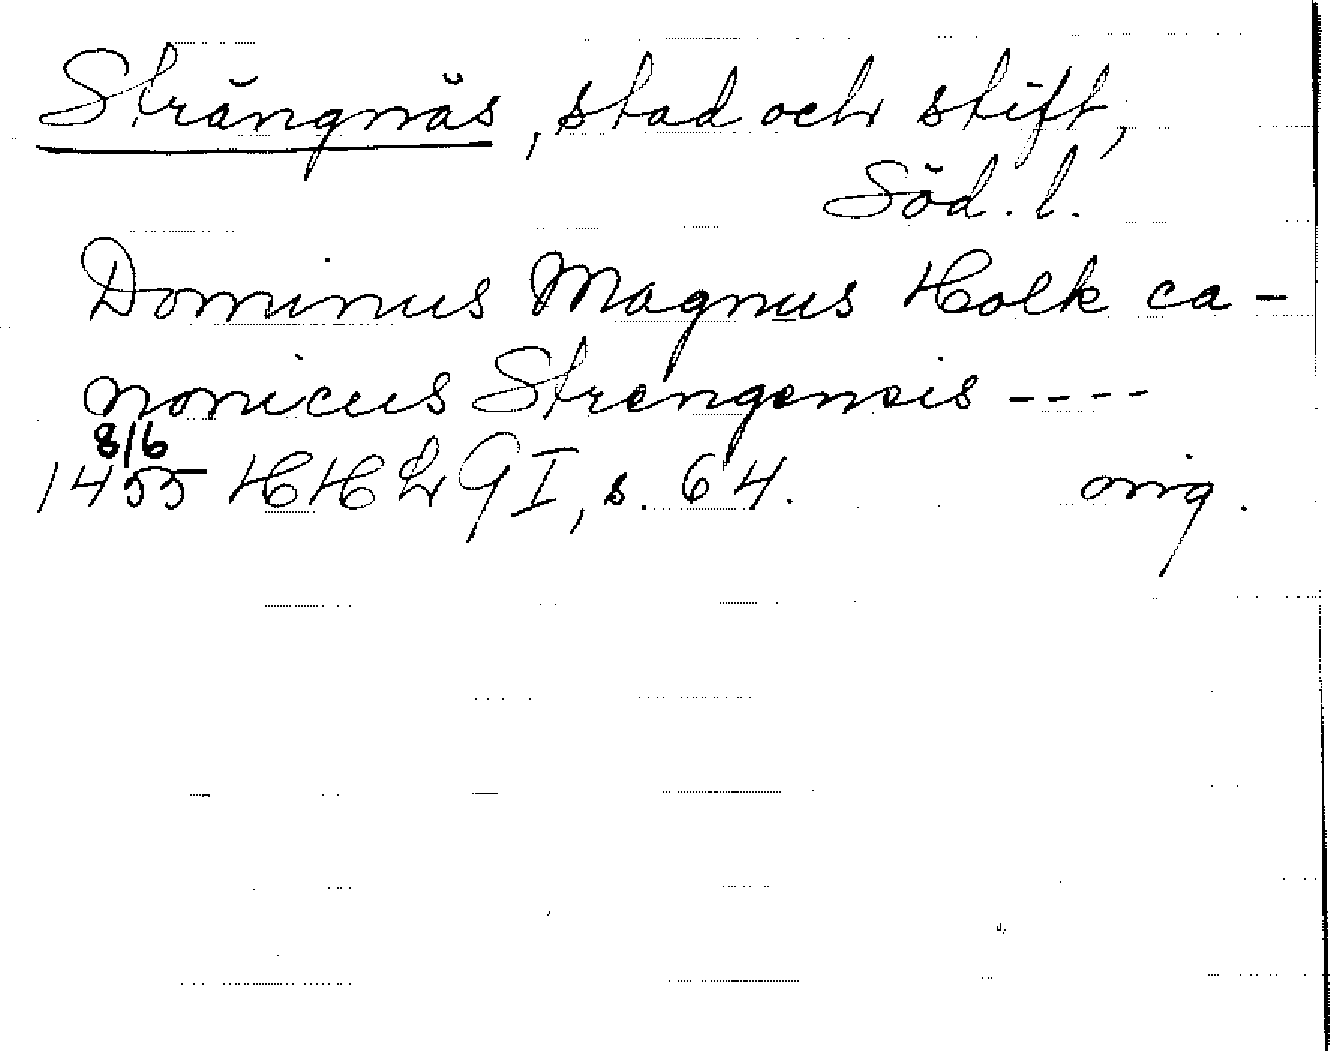 Strängnäs, stad och stift,
Söd. l.
Dominus Magnus Holk ca-
nonicus Strengensis ----
8/6
1455 HH Lg I, s. 64. orig.